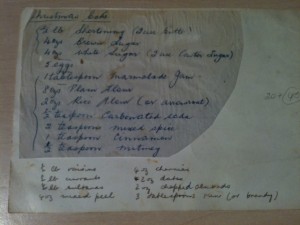 Christmas Cake
½ lb Shortening (I use butter)
4 ozs Brown Sugar
4 ozs White Sugar (I use Castor Sugar)
5 eggs
1 Tablespoon Marmalade Jam
8 ozs Plain Flour
2 ozs Rice Flour (or
½ Teaspoon Carbonated soda
½ Teaspoon mixed spice
½ Teaspoon Cinnamon
½ Teaspoon nutmeg
½ lb raisins
½ lb currants
½ lb sultanas
4 oz mixed peel
4 oz cherries
2 oz dates
2 oz chopped almonds
3 Tablespoons rum (or brandy)